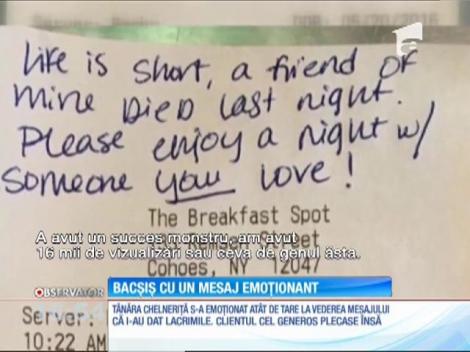 Life is short, a friend of
mine Died last night.
Please enjoy a night w/
someone you love!
The Breakfast Spot
Remsen Street
Cohoes, NY 12047
A avut un succes monstru, am avut
16 mii de vizualizări sau ceva de genul ăsta.
OBSERVATOR
BACȘIȘ CU UN MESAJ EMOȚIONANT
TÂNĂRA CHELNERIȚĂ S-A EMOȚIONAT ATÂT DE TARE LA VEDEREA MESAJULUI
CĂ I-AU DAT LACRIMILE. CLIENTUL CEL GENEROS PLECASE ÎNSĂ
Server:
10:22 AM